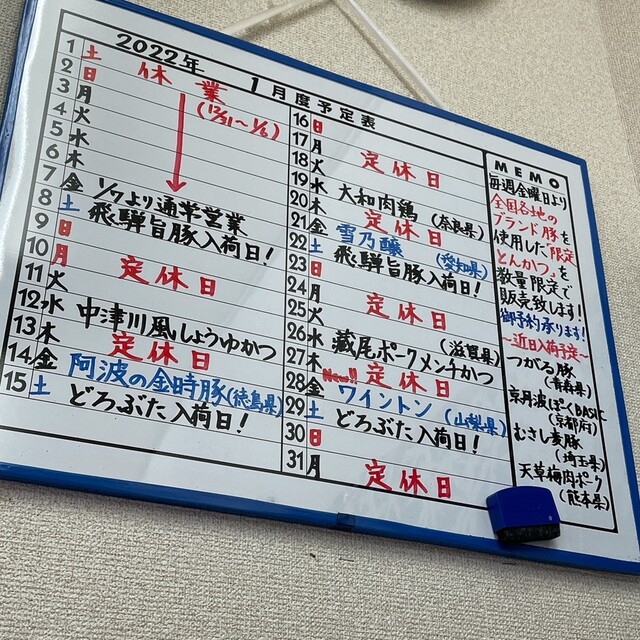 2022年 1月度予定表
1 土 休業
2 日 (12/31〜1/6)
3 月
4 火
5 水
6 木
7 金 1/7より通常営業
8 土 飛騨旨豚入荷日!
9 日
10 月 定休日
11 火
12 水 中津川風しょうゆかつ
13 木 定休日
14 金 阿波の金時豚(徳島県)
15 土 どろぶた入荷日!
16 日
17 月 定休日
18 火
19 水 大和肉鶏(奈良県)
20 木 定休日
21 金 雪乃醸(愛知県)
22 土 飛騨旨豚入荷日!
23 日
24 月 定休日
25 火
26 水 蔵尾ポークメンチかつ(滋賀県)
27 木 定休日
28 金 New!! ワイントン(山梨県)
29 土 どろぶた入荷日!
30 日
31 月 定休日
MEMO
毎週金曜日より
全国各地の
ブランド豚を
使用した「限定
とんかつ」を
数量限定で
販売致します!
御予約承ります!
〜近日入荷予定〜
つがる豚
(青森県)
京丹波ぽーくBASIC
(京都府)
むさし麦豚
(埼玉県)
天草梅肉ポーク
(熊本県)